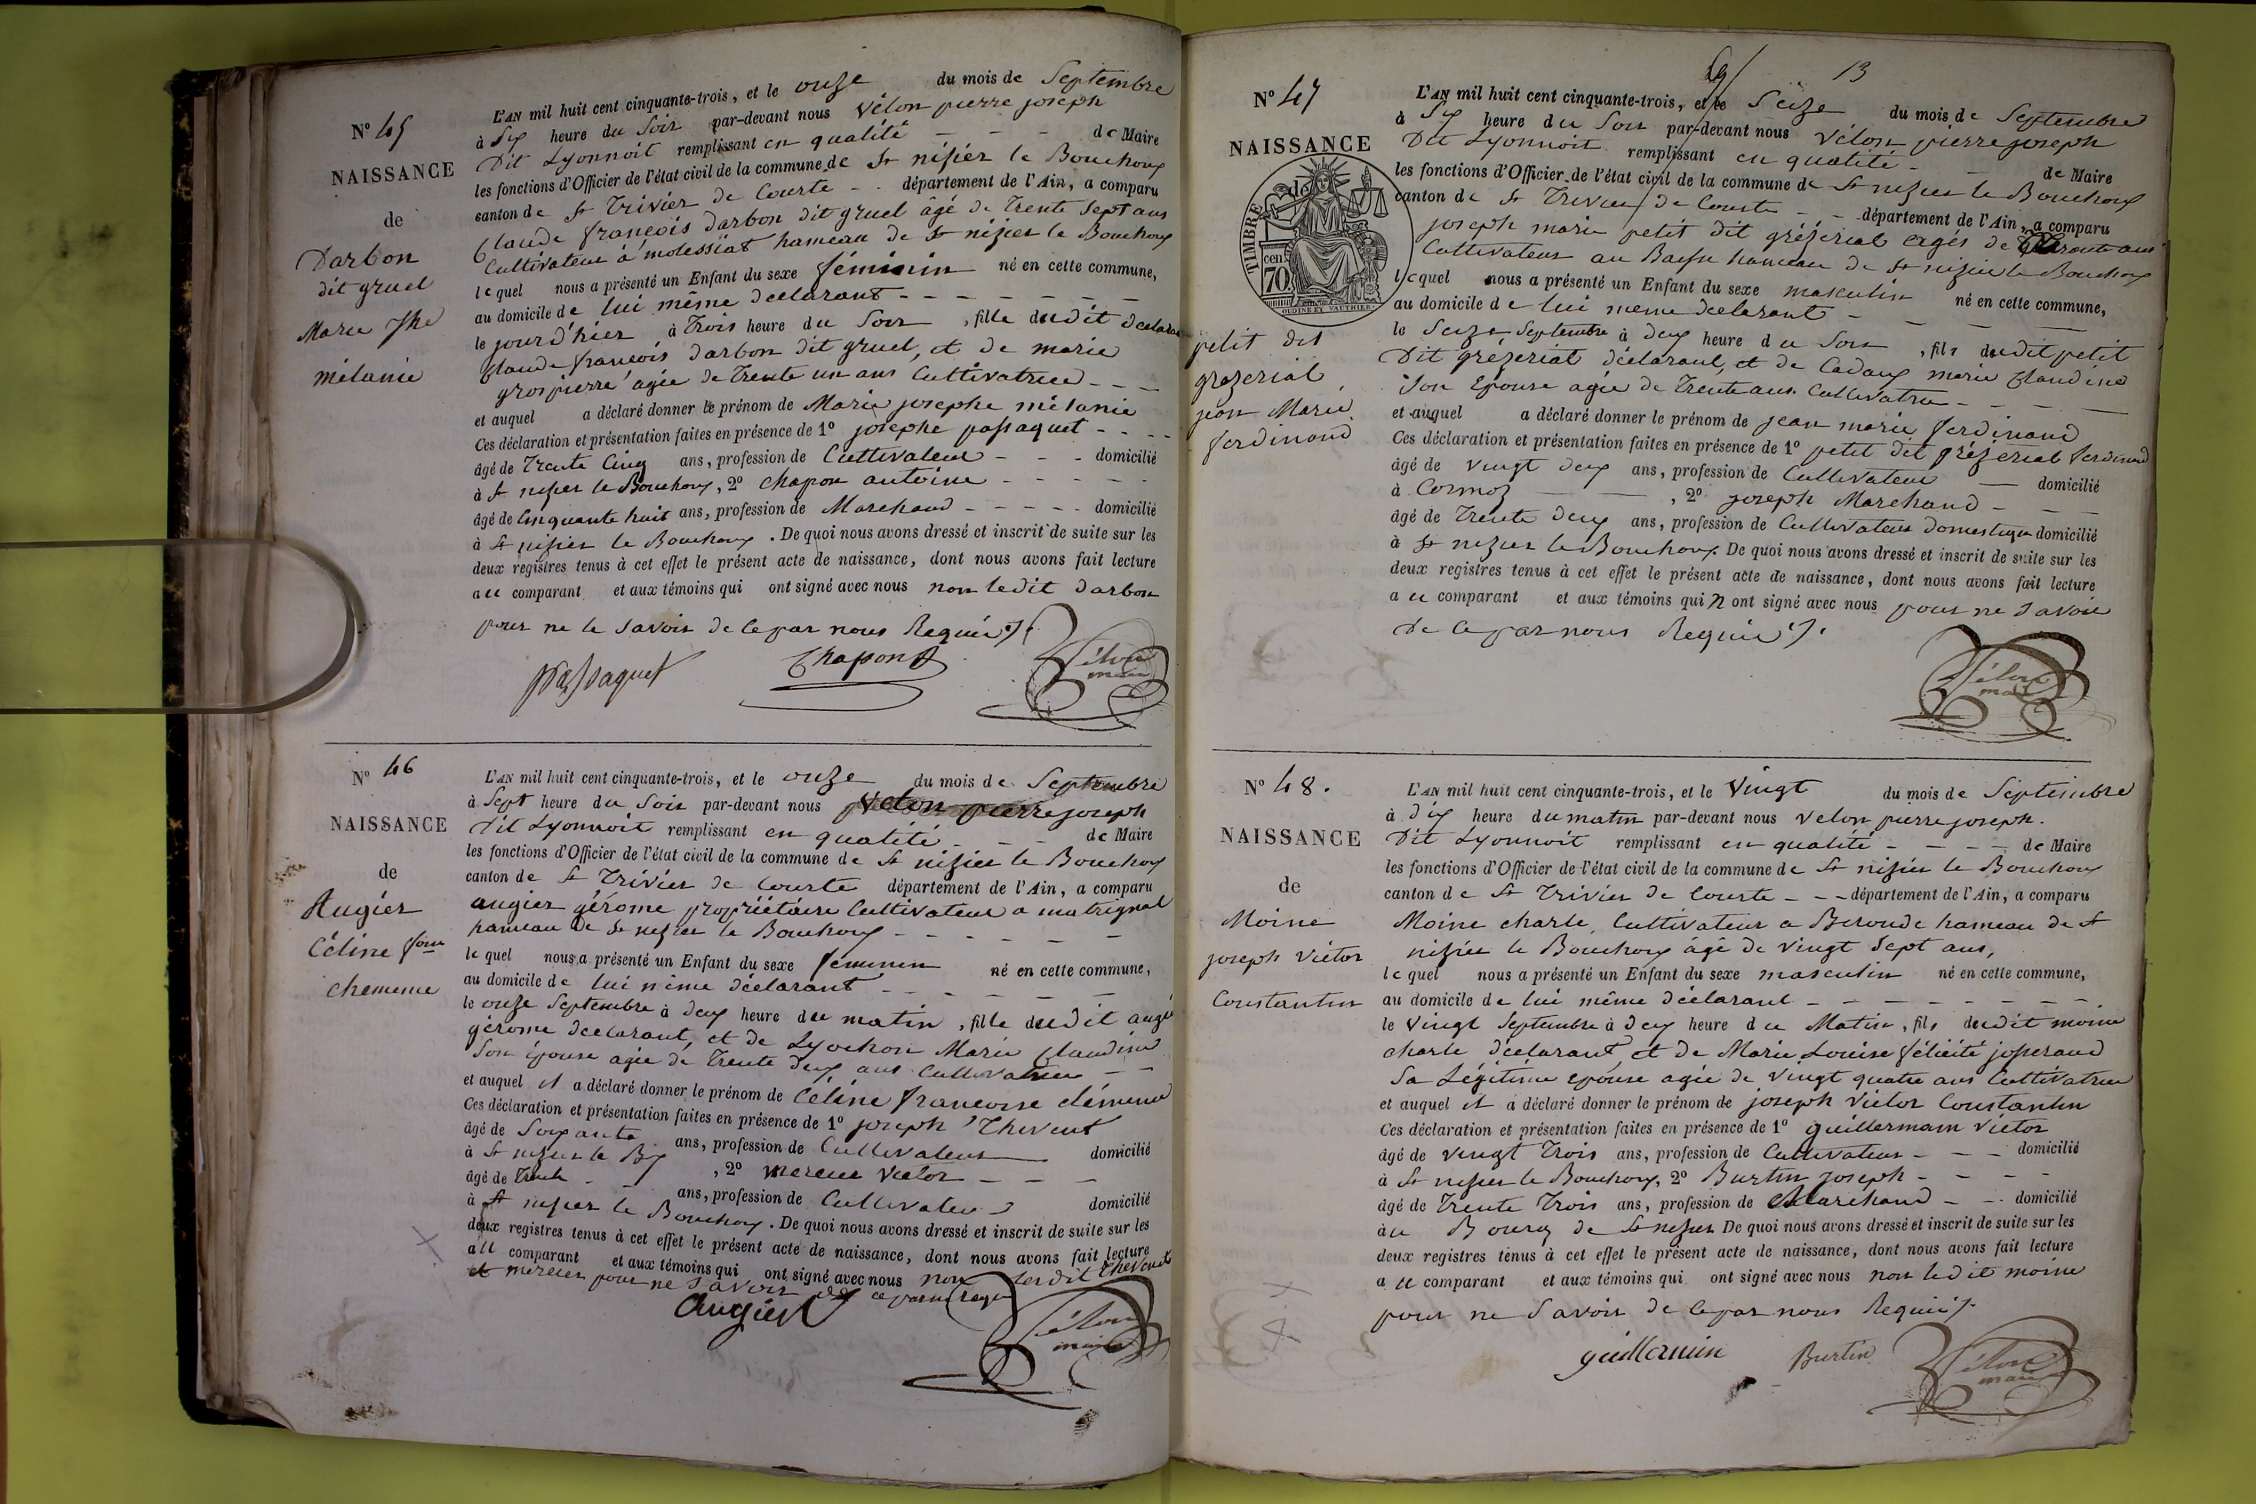 N° 45
NAISSANCE
de
Darbon
dit gruel
Marie Jhe
mélanie
L'AN mil huit cent cinquante-trois, et le onze du mois de Septembre
à Six heure du Soir par-devant nous Vélon pierre joseph
Dit Lyonnoit remplissant en qualité - - - de Maire
les fonctions d'Officier de l'état civil de la commune de St nizier le Bouchoux
canton de St Trivier de Courte - - département de l'Ain, a comparu
Claude françois Darbon dit gruel âgé de Trente Sept ans
Cultivateur à molessiat hameau de St nizier le Bouchoux
lequel nous a présenté un Enfant du sexe féminin né en cette commune,
au domicile de lui même déclarant - - - - - - -
le jour d'hier à Trois heure du Soir, fille dudit déclarant
Claude françois Darbon dit gruel, et de marie
grospierre agée de Trente un ans Cultivatrice - - -
et auquel a déclaré donner le prénom de Marie josephe mélanie
Ces déclaration et présentation faites en présence de 1° josephe passaquet - - - -
âgé de Trente Cinq ans, profession de Cultivateur - - - domicilié
à St nizier le Bouchoux, 2° Chapon antoine - - - - -
âgé de Cinquante huit ans, profession de Marchand - - - - - domicilié
à St nizier le Bouchoux. De quoi nous avons dressé et inscrit de suite sur les
deux registres tenus à cet effet le présent acte de naissance, dont nous avons fait lecture
au comparant et aux témoins qui ont signé avec nous non ledit Darbon
pour ne le Savoir de ce par nous Requis ./.
Passaquet Chapon Vélon
maire
N° 46
NAISSANCE
de
Augier
Céline fçoise
clemence
L'AN mil huit cent cinquante-trois, et le onze du mois de Septembre
à Sept heure du Soir par-devant nous Velon pierre joseph
Dit Lyonnoit remplissant en qualité - - - de Maire
les fonctions d'Officier de l'état civil de la commune de St nizier le Bouchoux
canton de St Trivier de Courte département de l'Ain, a comparu
augier gérome propriétaire Cultivateur a matrignat
hameau de St nizier le Bouchoux - - - - - -
lequel nous a présenté un Enfant du sexe feminin né en cette commune,
au domicile de lui même déclarant - - - - - -
le onze Septembre à deux heure du matin, fille dudit augier
gérome déclarant, et de Lyochon Marie Claudine
Son épouse agée de Trente deux ans Cultivatrice - -
et auquel il a déclaré donner le prénom de Céline francoise clémence
Ces déclaration et présentation faites en présence de 1° joseph Thevent
âgé de Soixante ans, profession de Cultivateur domicilié
à St nizier le Bx, 2° mercier Victor - - -
âgé de trente - - ans, profession de Cultivateur domicilié
à St nizier le Bouchoux. De quoi nous avons dressé et inscrit de suite sur les
deux registres tenus à cet effet le présent acte de naissance, dont nous avons fait lecture
au comparant et aux témoins qui ont signé avec nous non lesdit Thevent
et mercier pour ne Savoir de ce par nous requis
augier Vélon
maire
13
N° 47
NAISSANCE
de
TIMBRE
70
OUDINÉ ET VAUTHIER
petit dit
grézeriat
jean Marie
ferdinand
L'AN mil huit cent cinquante-trois, et le Seize du mois de Septembre
à Six heure du Soir par-devant nous Vélon pierre joseph
Dit Lyonnoit remplissant en qualité - - de Maire
les fonctions d'Officier de l'état civil de la commune de St nizier le Bouchoux
canton de St Trivier de Courte - - département de l'Ain, a comparu
joseph marie petit dit grézeriat agés de quarante ans
Cultivateur au hameau de St nizier le Bouchoux
lequel nous a présenté un Enfant du sexe masculin né en cette commune,
au domicile de lui meme déclarant - - - - -
le Seize Septembre à deux heure du Soir, fils dudit petit
Dit grézeriat déclarant, et de Cadoux marie Claudine
Son Epouse agée de Trente ans Cultivatrice - - - -
et auquel a déclaré donner le prénom de jean marie ferdinand
Ces déclaration et présentation faites en présence de 1° petit dit grézeriat ferdinand
âgé de vingt deux ans, profession de Cultivateur - domicilié
à Cormoz - - , 2° joseph Marchand - - -
âgé de Trente deux ans, profession de Cultivateur Domestique domicilié
à St nizier le Bouchoux. De quoi nous avons dressé et inscrit de suite sur les
deux registres tenus à cet effet le présent acte de naissance, dont nous avons fait lecture
au comparant et aux témoins qui n ont signé avec nous pour ne Savoir
de ce par nous Requis ./.
Vélon
maire
N° 48.
NAISSANCE
de
Moine
joseph Victor
Constantin
L'AN mil huit cent cinquante-trois, et le Vingt du mois de Septembre
à dix heure du matin par-devant nous Velon pierre joseph.
Dit Lyonnoit remplissant en qualité - - - - de Maire
les fonctions d'Officier de l'état civil de la commune de St nizier le Bouchoux
canton de St Trivier de Courte - - - département de l'Ain, a comparu
Moine charle, Cultivateur a Beroude hameau de St
nizier le Bouchoux âgé de vingt Sept ans,
lequel nous a présenté un Enfant du sexe masculin né en cette commune,
au domicile de lui même déclarant - - - - - - - -
le vingt Septembre à deux heure du Matin, fils dudit moine
charle déclarant et de Marie Louise félicité josserand
Sa Légitime epouse agée de vingt quatre ans Cultivatrice
et auquel il a déclaré donner le prénom de joseph Victor Constantin
Ces déclaration et présentation faites en présence de 1° guillermain Victor
âgé de vingt Trois ans, profession de Cultivateur - - - domicilié
à St nizier le Bouchoux, 2° Burtin joseph - - - -
âgé de Trente Trois ans, profession de Marchand - - domicilié
au Bourg de St nizier De quoi nous avons dressé et inscrit de suite sur les
deux registres tenus à cet effet le présent acte de naissance, dont nous avons fait lecture
au comparant et aux témoins qui ont signé avec nous non ledit moine
pour ne Savoir de ce par nous Requis ./.
guillermin Burtin Vélon
maire